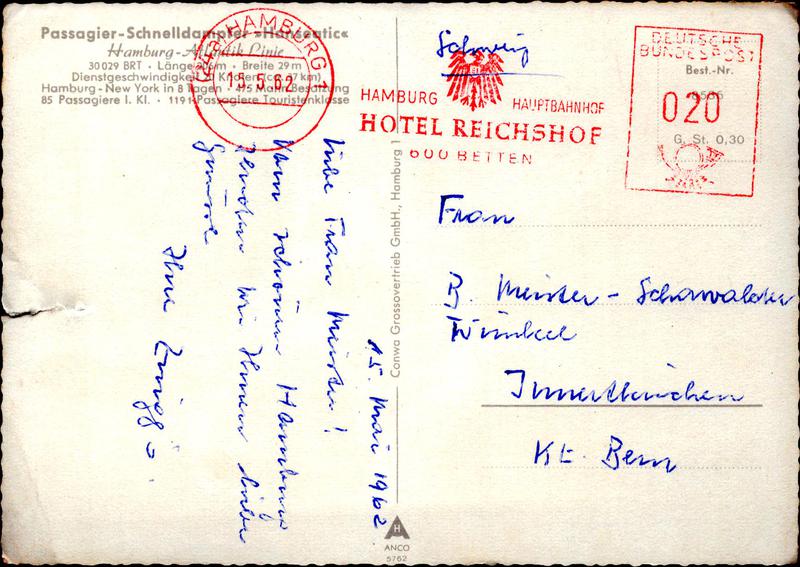 Passagier-Schnelldampfer »Hanseatic«
Hamburg-Atlantik Linie
30029 BRT · Länge 206m · Breite 29 m
Dienstgeschwindigkeit 20 Kn per (37 km)
Hamburg - New York in 8 Tagen · 475 Mann Besatzung
85 Passagiere I. Kl. · 1191 Passagiere Touristenklasse
HAMBURG 1
15.5.62
Schweiz
HAMBURG HAUPTBAHNHOF
HOTEL REICHSHOF
600 BETTEN
DEUTSCHE
BUNDESPOST
Best.-Nr.
020
G. St. 0,30
15. Mai 1962
Liebe Frau Meister!
Vom schönen Hamburg
senden wir Ihnen liebe
Grüsse
Ihre
Conwa Grossovertrieb GmbH., Hamburg 1
Frau
Meister - Schawalder
Winkel
Innertkirchen
Kt. Bern
H
ANCO
5762